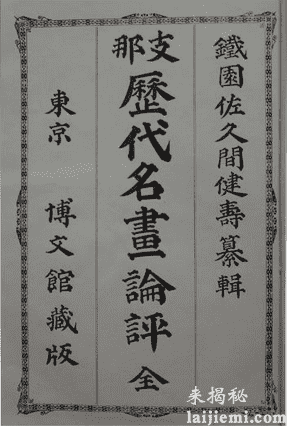 鐵園佐久間健壽纂輯
支那
歷代名畫論評 全
東京 博文館藏版
来揭秘
laijiemi.com